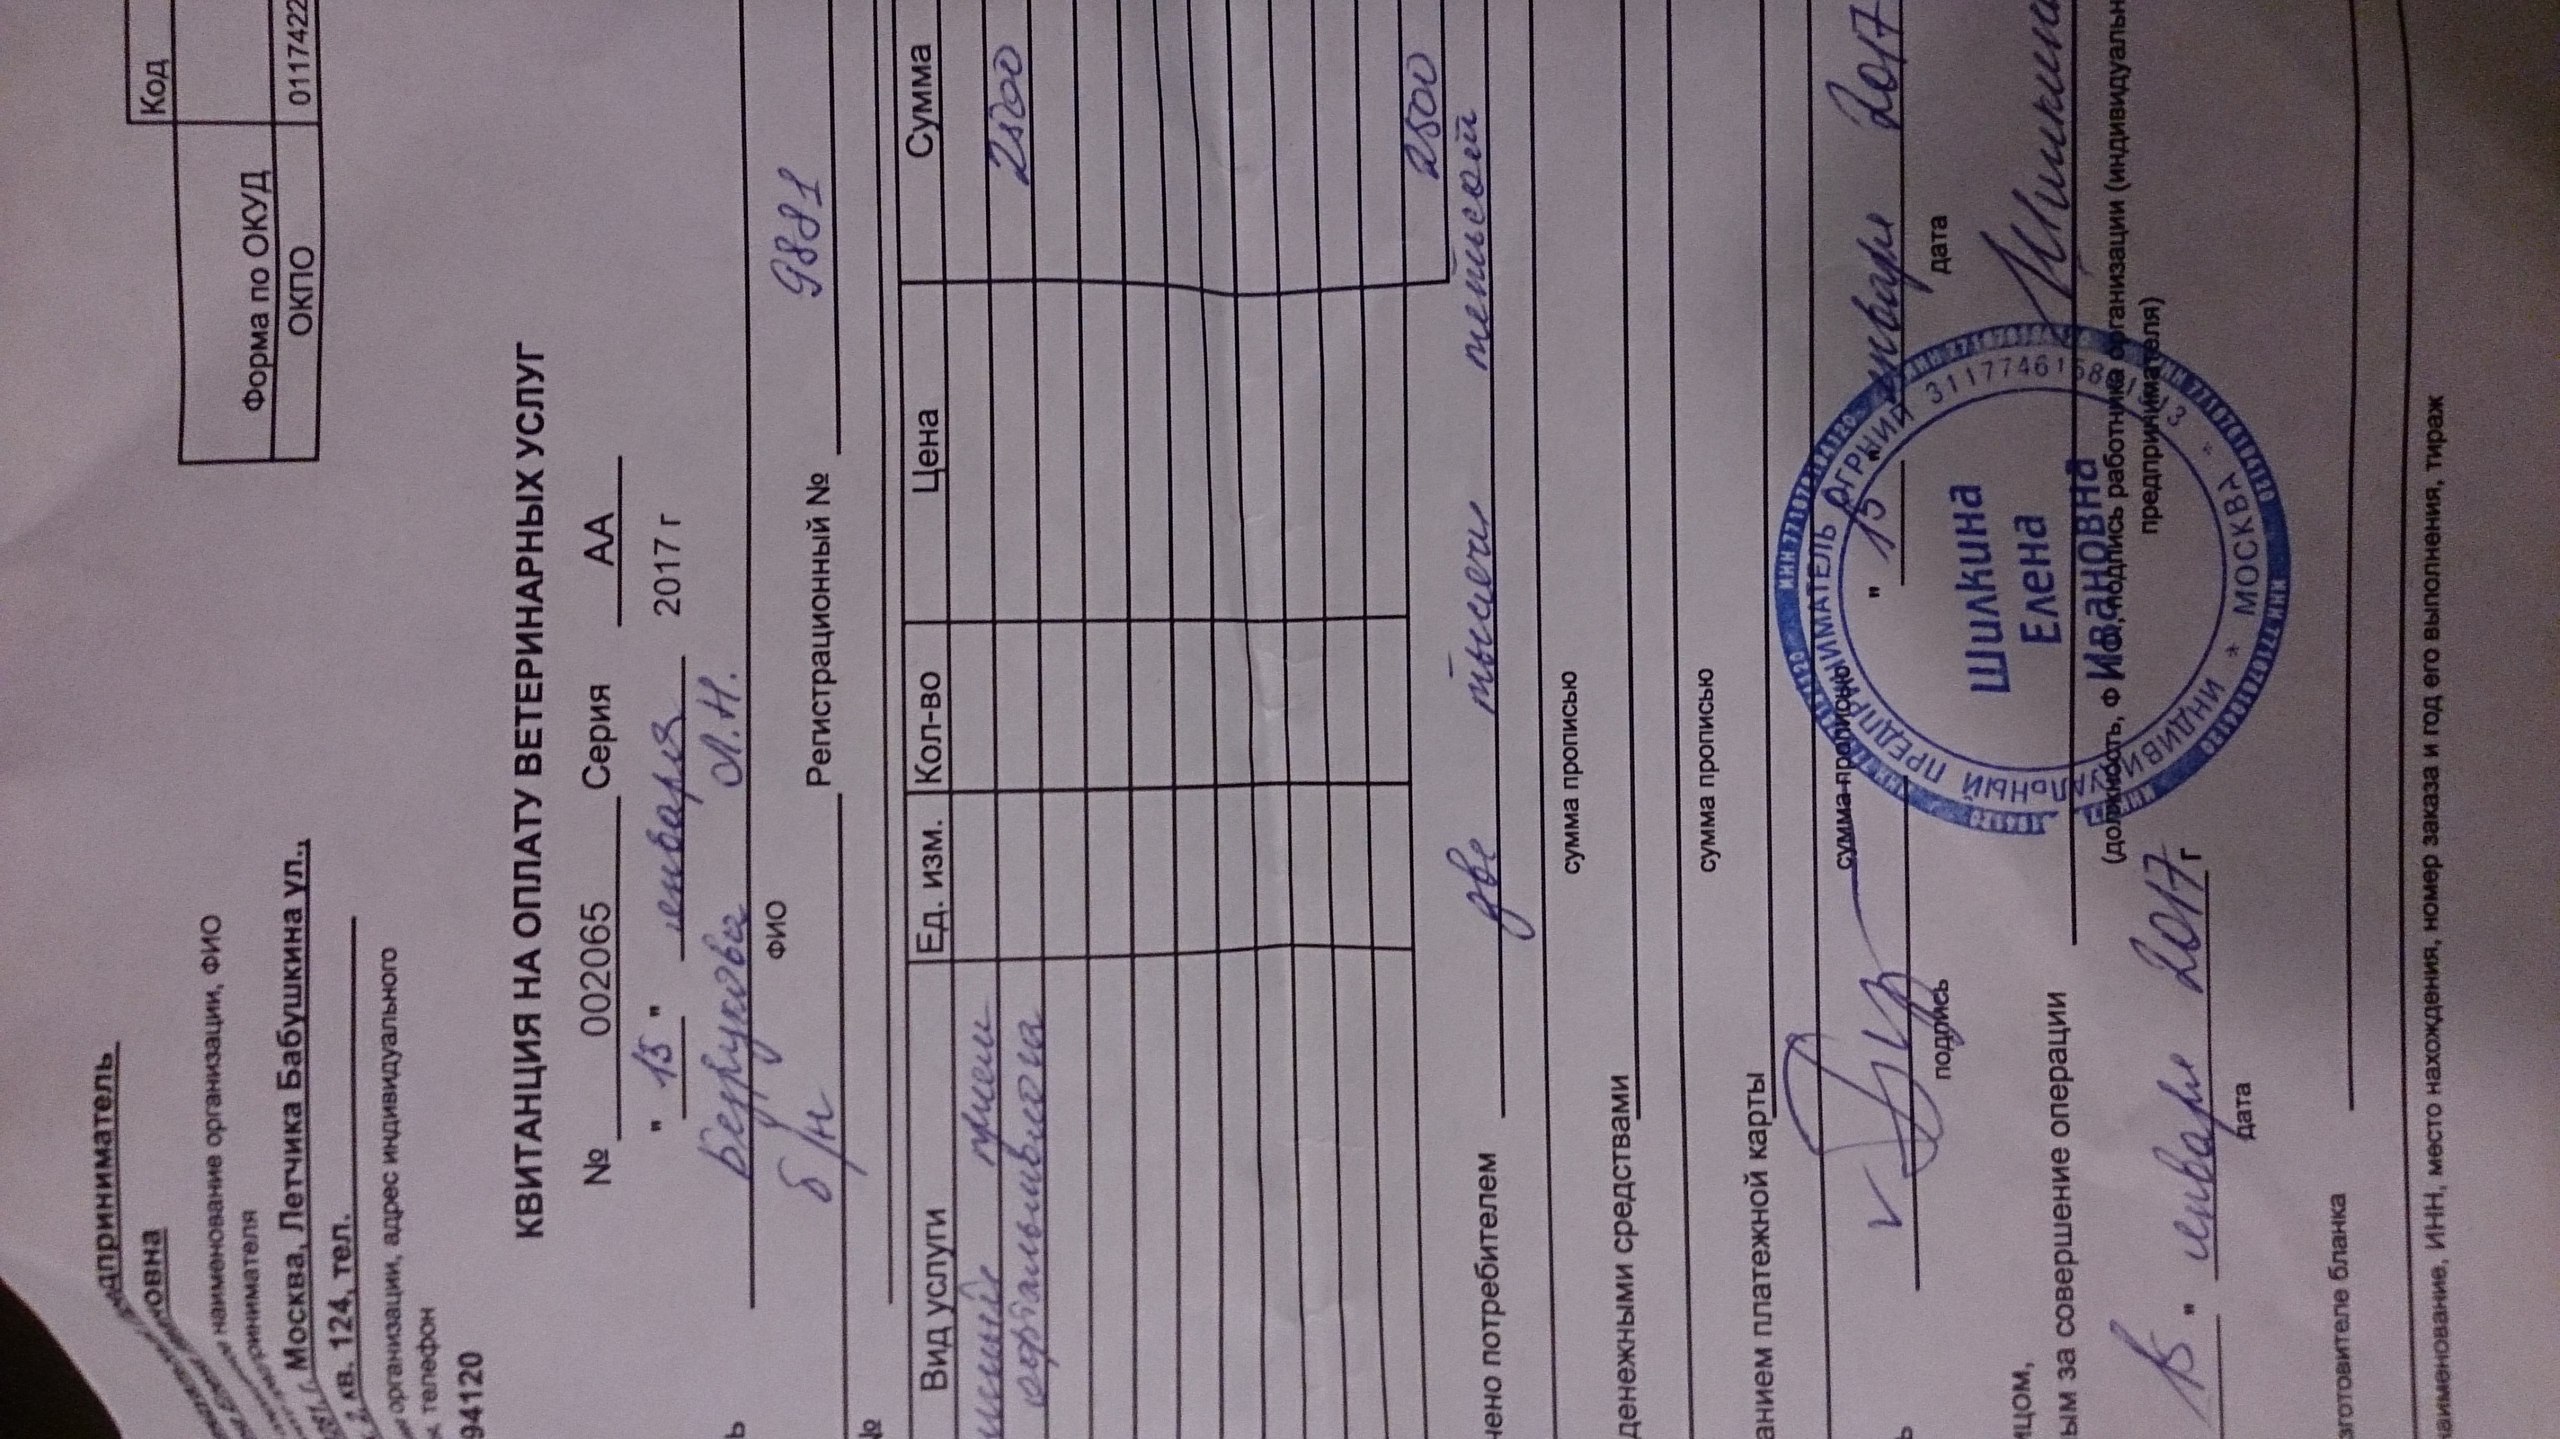 Код
Форма по ОКУД
ОКПО 0117422
дприниматель
овна
наименование организации, ФИО
Москва, Летчика Бабушкина ул.,
кв. 124, тел.
организации, адрес индивидуального
телефон
94120
КВИТАНЦИЯ НА ОПЛАТУ ВЕТЕРИНАРНЫХ УСЛУГ
№ 002065 Серия АА
" 15 " января 2017 г
Л.Н.
ФИО
б/н Регистрационный № 9881
№
Вид услуги Ед. изм. Кол-во Цена Сумма
прием 2500
офтальмолога
2500
чено потребителем две тысячи пятьсот
сумма прописью
денежными средствами
сумма прописью
анием платежной карты
сумма прописью
" 15 " января 2017
подпись дата
ицом,
ым за совершение операции
(должность, ФИО, подпись работника организации (индивидуальн
предпринимателя)
15 " января 2017 г
дата
ИНДИВИДУАЛЬНЫЙ ПРЕДПРИНИМАТЕЛЬ ОГРНИП
* МОСКВА *
Шилкина
Елена
Ивановна
зготовителе бланка
аименование, ИНН, место нахождения, номер заказа и год его выполнения, тираж